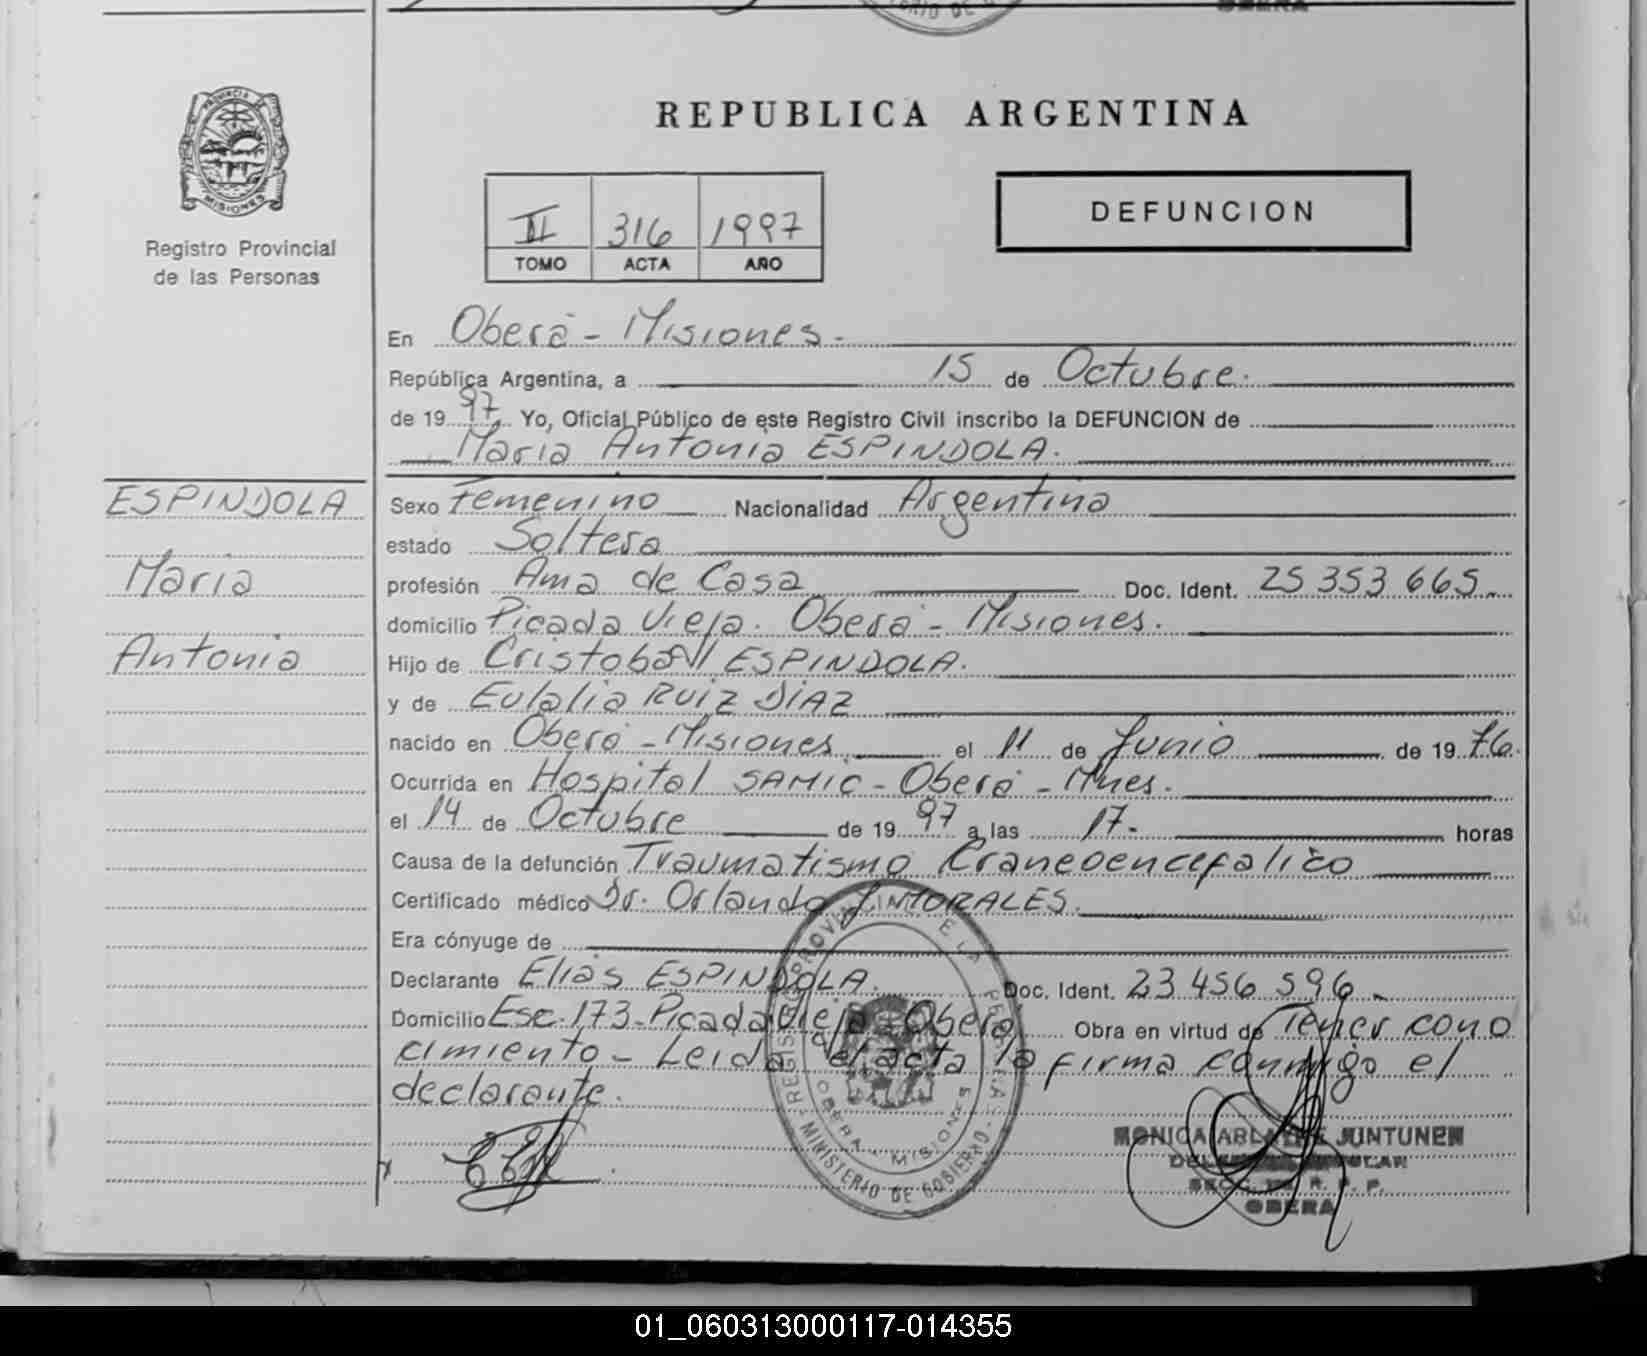 OBERA
REPUBLICA ARGENTINA
PROVINCIA DE
MISIONES
Registro Provincial
de las Personas
II 316 1997
TOMO ACTA AÑO
DEFUNCION
En Oberá - Misiones.-
República Argentina, a 15 de Octubre.
de 19 97 Yo, Oficial Público de este Registro Civil inscribo la DEFUNCION de
Maria Antonia ESPINDOLA.
ESPINDOLA
Maria
Antonia
Sexo Femenino Nacionalidad Argentina
estado Soltera
profesión Ama de Casa Doc. Ident. 25 353 665.
domicilio Picada Vieja. Oberá - Misiones.
Hijo de Cristobal ESPINDOLA.
y de Eulalia RUIZ DIAZ
nacido en Oberá - Misiones el 11 de Junio de 19 76.
Ocurrida en Hospital SAMIC - Oberá - Mnes.
el 14 de Octubre de 19 97 a las 17. horas
Causa de la defunción Traumatismo Craneoencefalico
Certificado médico Dr. Orlando J. MORALES.
Era cónyuge de
Declarante Elias ESPINDOLA. Doc. Ident. 23 456 596.
Domicilio Esc. 173 - Picada Vieja - Oberá Obra en virtud de Tener cono
cimiento - Leida el acta la firma conmigo el
declarante.
REGISTRO PROVINCIAL DE LA PERSONAS
OBERA - MISIONES
MINISTERIO DE GOBIERNO
MONICA JUNTUNEN
R. P. P.
OBERA
01_060313000117-014355